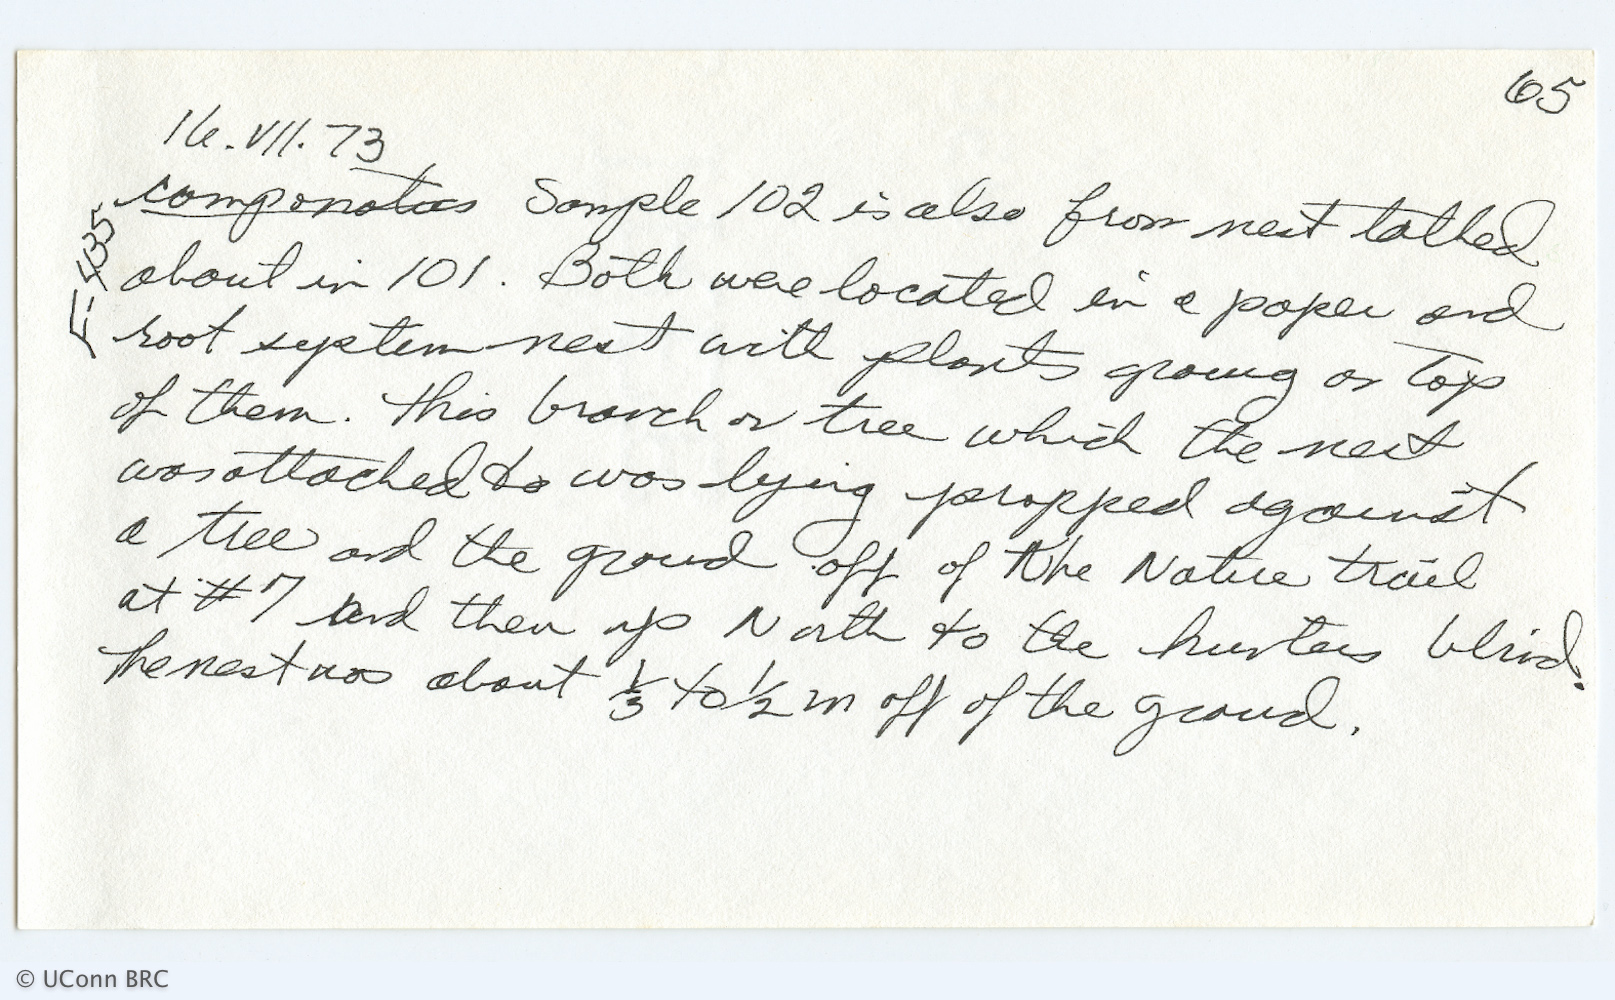 65
16.VII.73
F-435
componotus Sample 102 is also from nest talked
about in 101. Both were located in a paper and
root system nest with plants growing on top
of them. This branch or tree which the nest
was attached to was lying propped against
a tree and the ground off of the Nature trail
at #7 and then up North to the hunters blind.
The nest was about 1/3 to 1/2 m off of the ground.
© UConn BRC